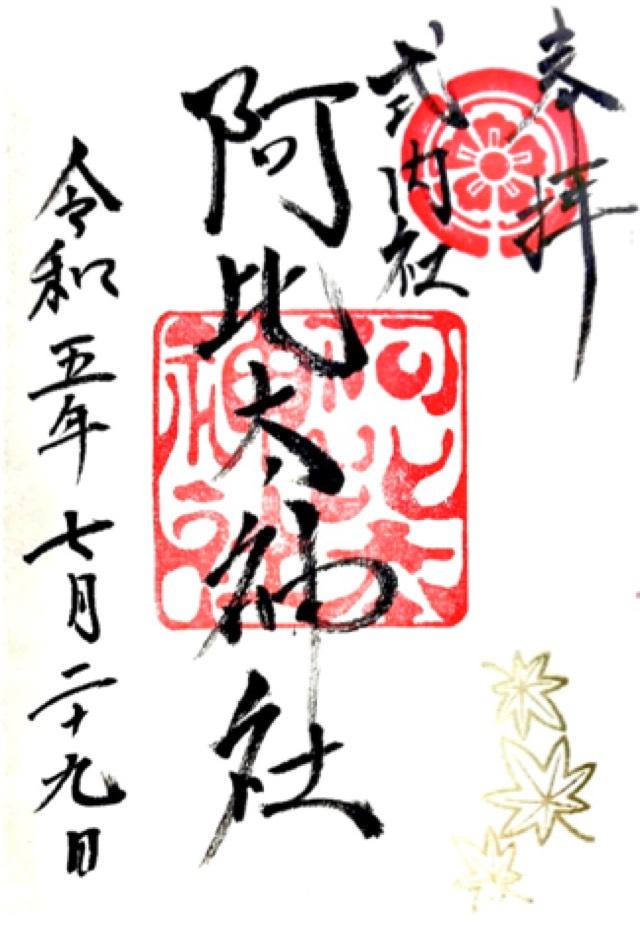 奉拝
式内社
阿比太神社
令和五年七月二十九日